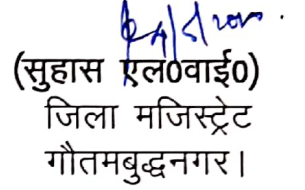 (सुहास एल0वाई0)
जिला मजिस्ट्रेट
गौतमबुद्धनगर।